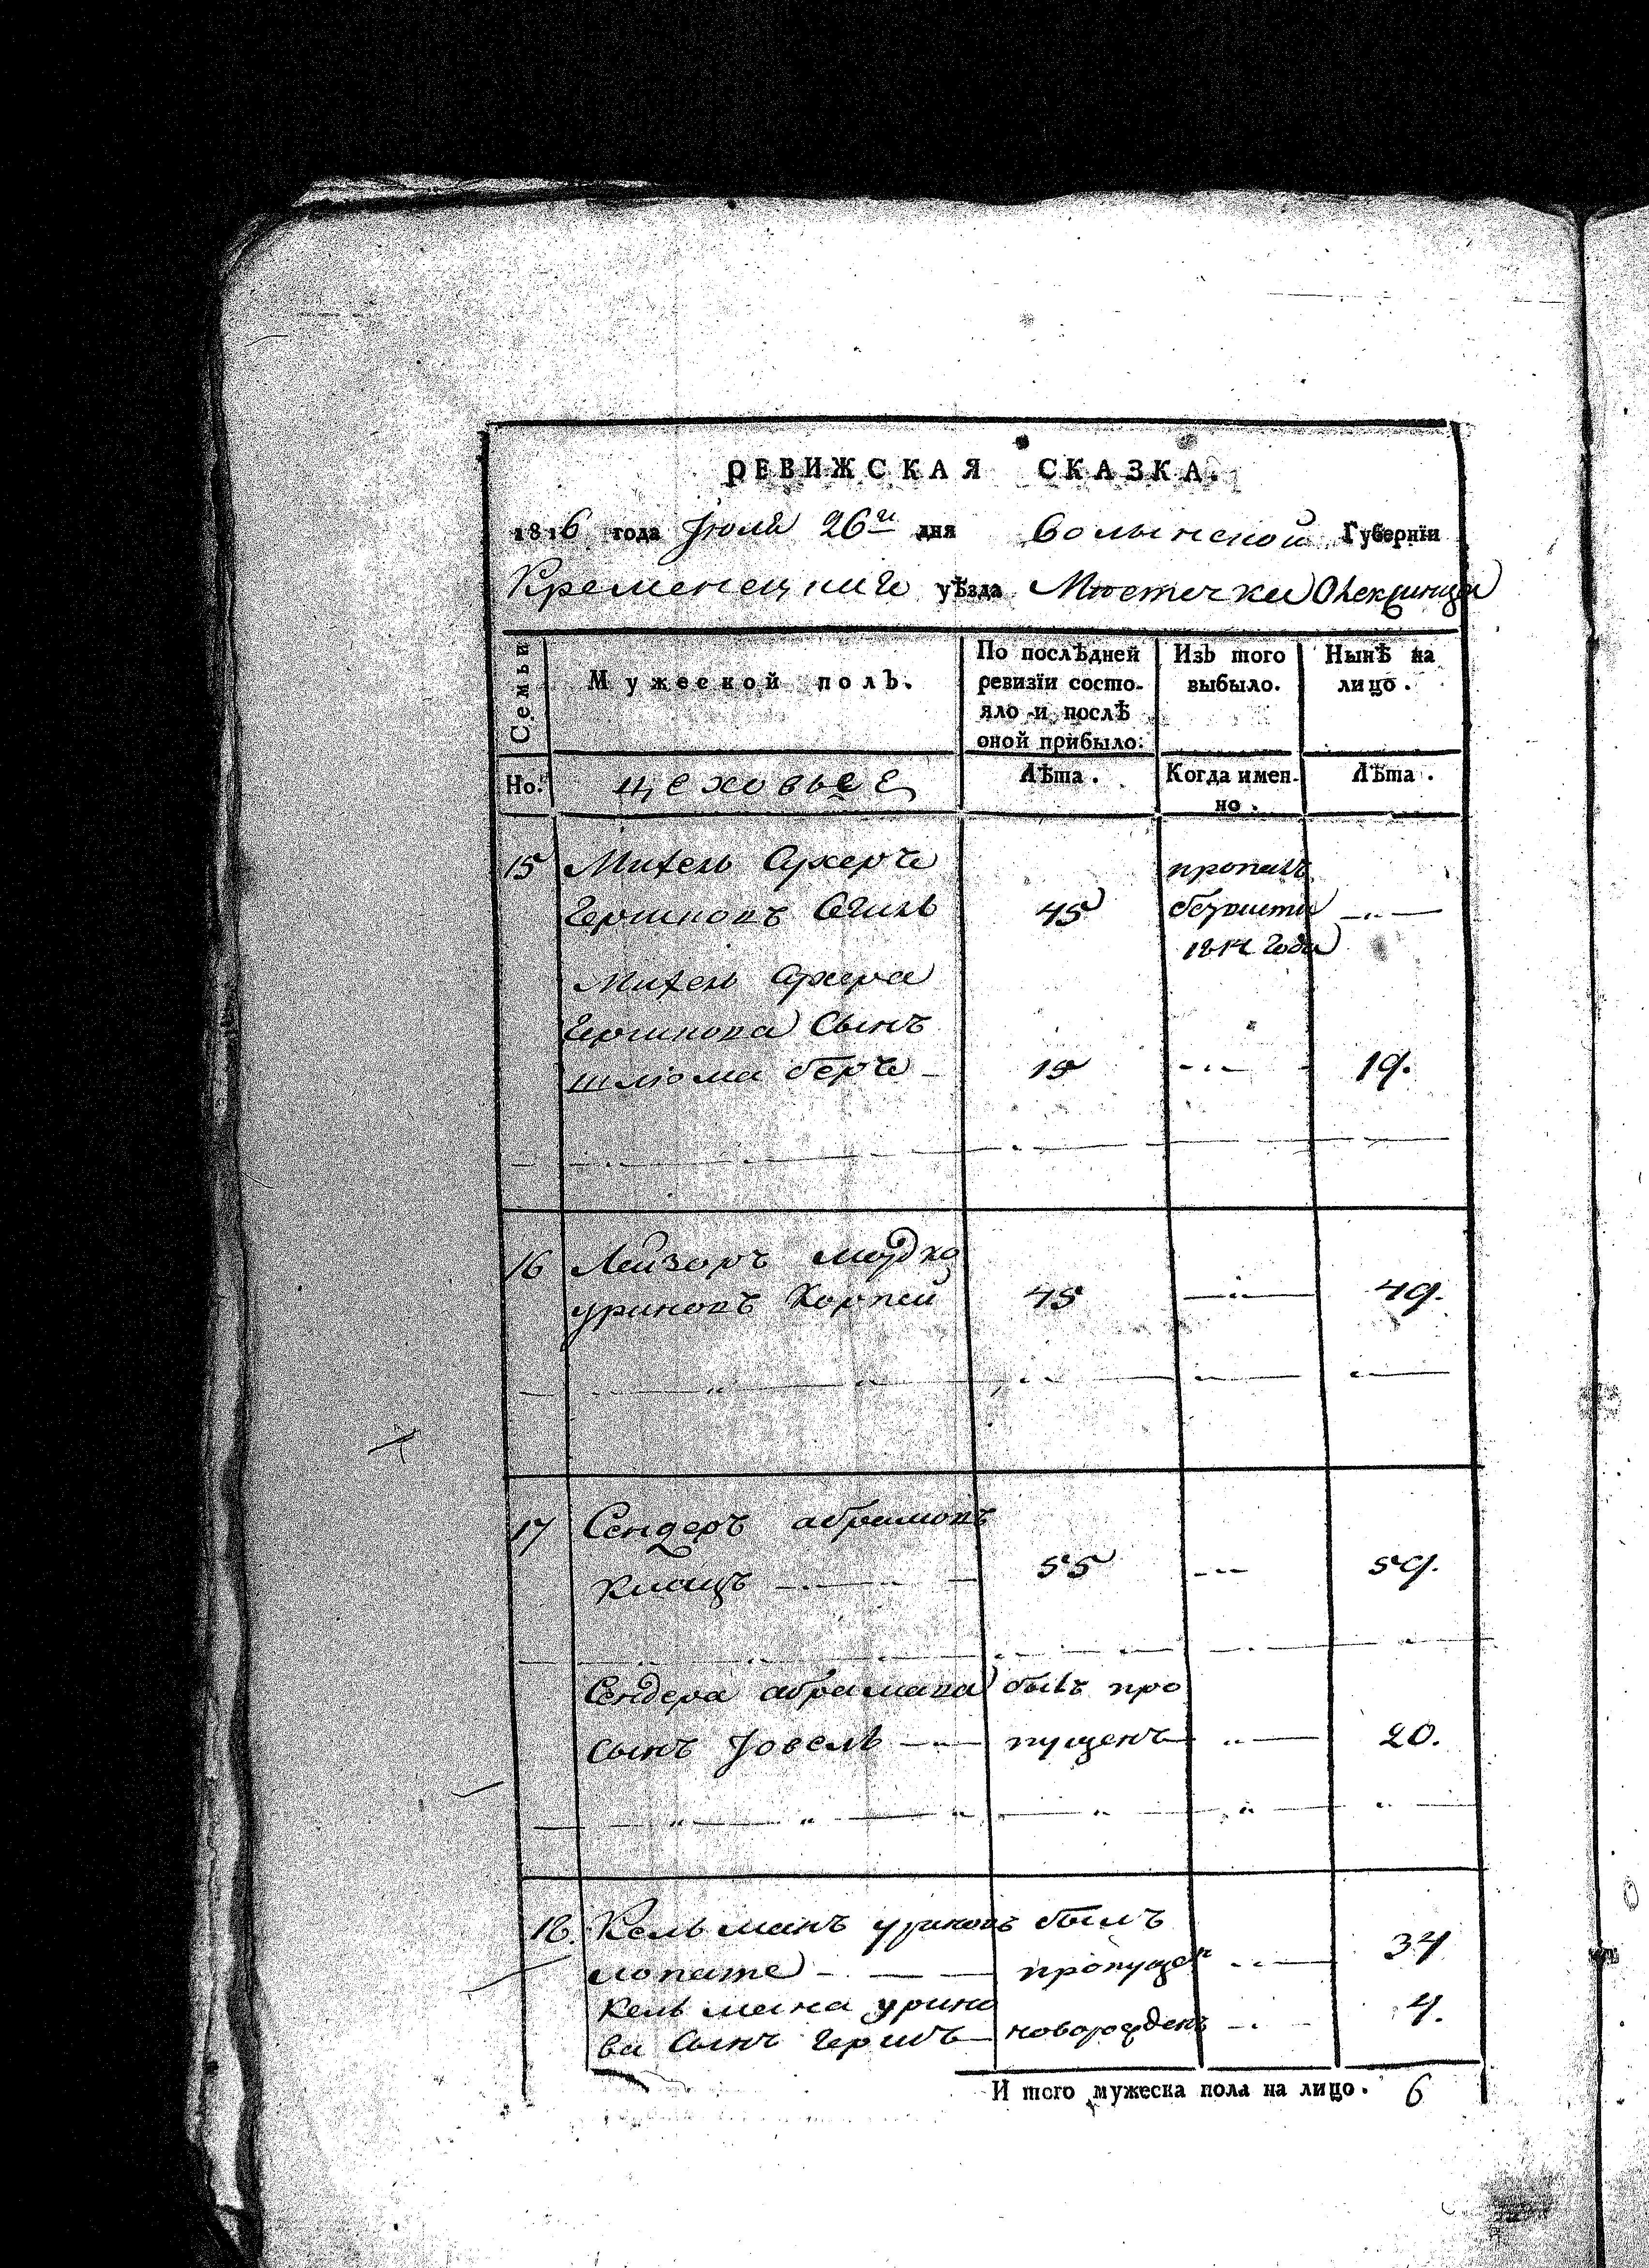 РЕВИЖСКАЯ СКАЗКА.
1816 года Июля 26го дня Волынской Губернїи
Кременецкаго уѣзда Мѣстечка
Семьи
Мужеской полъ.
По послѣдней ревизїи состояло и послѣ оной прибыло.
Изъ того выбыло.
Нынѣ на лицо.
Но. цеховые Лѣта. Когда именно. Лѣта.
15 Михель пропалъ
Гершковъ 45 безвисти
1812 года
Михель
Гершкова Сынъ
шлюома беръ 15 19.
16 Лейзоръ мордко
уриновъ Корпей 45 49.
17 Сендеръ абрамовъ
Клацъ 55 59.
Сендера абрамова былъ про
сынъ Иовель пущенъ 20.
18. Кельманъ уриновъ былъ
лопате пропущен 34
Кельмана урино
ва Сынъ Гершъ новорожденъ 4.
И того мужеска пола на лицо. 6